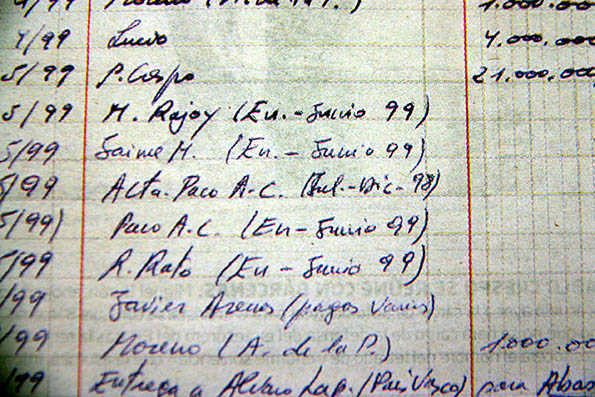 4/99 Moreno 1.000.000
4/99 Lucio 4.000.000
5/99 P. Crespo 21.000.000
5/99 M. Rajoy (En.-Junio 99)
5/99 Jaime M. (En.-Junio 99)
5/99 Acta-Paco A-C. (Jul.-Dic-98)
5/99) Paco A.C. (En-Junio 99)
5/99 R. Rato (En-Junio 99)
/99 Javier Arenas (pagos varios)
/99 Moreno (A. de la P.) 1.000.00
/99 Entrega a Alvaro Lap. (País Vasco) para